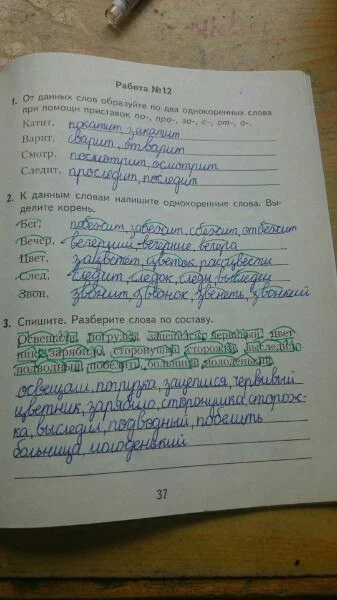 Работа №12
1. От данных слов образуйте по два однокоренных слова
при помощи приставок по-, про-, за-, с-, от-, о-.
Катит, покатит, закатит
Варит, сварит, отварит
Смотр, посмотрит, осмотрит
Следит, проследит, последит
2. К данным словам напишите однокоренные слова. Вы-
делите корень.
Бег, побежит, забежит, сбежит, отбежит
Вечер, вечерний, вечерние, вечера
Цвет, зацветет, цветок, расцвести
След, следит, следок, следы, выследил
Звон, звонит, звонок, звенеть, звонкий
3. Спишите. Разберите слова по составу.
Освещали, погрузка, зацепился, червивый, цвет-
ник, зарябило, сторонушка, сторожка, выследил,
подводный, побелить, больница, молоденький.
освещали, погрузка, зацепился, червивый
цветник, зарябило, сторонушка, сторож-
ка, выследил, подводный, побелить
больница, молоденький
37